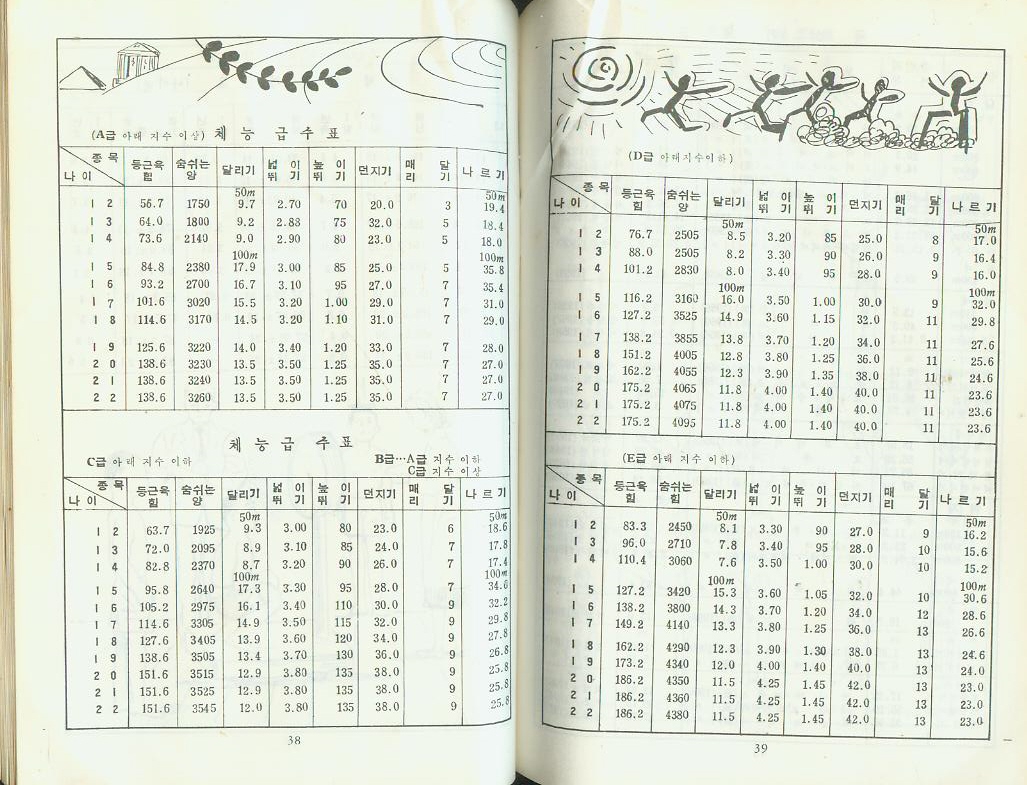 (A급 아래 지수 이상) 체 능 급 수 표
종 목 둥근육 숨쉬는 달리기 넓 이 높 이 던지기 매 달 나 르 기
나 이 힘 양 뛰 기 뛰 기 리 기
50m 50m
1 2 56.7 1750 9.7 2.70 70 20.0 3 19.4
1 3 64.0 1800 9.2 2.88 75 32.0 5 18.4
1 4 73.6 2140 9.0 2.90 80 23.0 5 18.0
100m 100m
1 5 84.8 2380 17.9 3.00 85 25.0 5 35.8
1 6 93.2 2700 16.7 3.10 95 27.0 7 35.4
1 7 101.6 3020 15.5 3.20 1.00 29.0 7 31.0
1 8 114.6 3170 14.5 3.20 1.10 31.0 7 29.0
1 9 125.6 3220 14.0 3.40 1.20 33.0 7 28.0
2 0 138.6 3230 13.5 3.50 1.25 35.0 7 27.0
2 1 138.6 3240 13.5 3.50 1.25 35.0 7 27.0
2 2 138.6 3260 13.5 3.50 1.25 35.0 7 27.0
체 능 급 수 표
C급 아래 지수 이하 B급…A급 지수 이하
C급 지수 이상
종 목 둥근육 숨쉬는 달리기 넓 이 높 이 던지기 매 달 나 르 기
나 이 힘 양 뛰 기 뛰 기 리 기
50m 50m
1 2 63.7 1925 9.3 3.00 80 23.0 6 18.6
1 3 72.0 2095 8.9 3.10 85 24.0 7 17.8
1 4 82.8 2370 8.7 3.20 90 26.0 7 17.4
100m 100m
1 5 95.8 2640 17.3 3.30 95 28.0 7 34.6
1 6 105.2 2975 16.1 3.40 110 30.0 9 32.2
1 7 114.6 3305 14.9 3.50 115 32.0 9 29.8
1 8 127.6 3405 13.9 3.60 120 34.0 9 27.8
1 9 138.6 3505 13.4 3.70 130 36.0 9 26.8
2 0 151.6 3515 12.9 3.80 135 38.0 9 25.8
2 1 151.6 3525 12.9 3.80 135 38.0 9 25.8
2 2 151.6 3545 12.0 3.80 135 38.0 9 25.8
38
(D급 아래 지수이하)
종 목 둥근육 숨쉬는 달리기 넓 이 높 이 던지기 매 달 나 르 기
나 이 힘 양 뛰 기 뛰 기 리 기
50m 50m
1 2 76.7 2505 8.5 3.20 85 25.0 8 17.0
1 3 88.0 2505 8.2 3.30 90 26.0 9 16.4
1 4 101.2 2830 8.0 3.40 95 28.0 9 16.0
100m 100m
1 5 116.2 3160 16.0 3.50 1.00 30.0 9 32.0
1 6 127.2 3525 14.9 3.60 1.15 32.0 11 29.8
1 7 138.2 3855 13.8 3.70 1.20 34.0 11 27.6
1 8 151.2 4005 12.8 3.80 1.25 36.0 11 25.6
1 9 162.2 4055 12.3 3.90 1.35 38.0 11 24.6
2 0 175.2 4065 11.8 4.00 1.40 40.0 11 23.6
2 1 175.2 4075 11.8 4.00 1.40 40.0 11 23.6
2 2 175.2 4095 11.8 4.00 1.40 40.0 11 23.6
(E급 아래 지수 이하)
종 목 둥근육 숨쉬는 달리기 넓 이 높 이 던지기 매 달 나 르 기
나 이 힘 양 뛰 기 뛰 기 리 기
50m 50m
1 2 83.3 2450 8.1 3.30 90 27.0 9 16.2
1 3 96.0 2710 7.8 3.40 95 28.0 10 15.6
1 4 110.4 3060 7.6 3.50 1.00 30.0 10 15.2
100m 100m
1 5 127.2 3420 15.3 3.60 1.05 32.0 10 30.6
1 6 138.2 3800 14.3 3.70 1.20 34.0 12 28.6
1 7 149.2 4140 13.3 3.80 1.25 36.0 13 26.6
1 8 162.2 4290 12.3 3.90 1.30 38.0 13 24.6
1 9 173.2 4340 12.0 4.00 1.40 40.0 13 24.0
2 0 186.2 4350 11.5 4.25 1.45 42.0 13 23.0
2 1 186.2 4360 11.5 4.25 1.45 42.0 13 23.0
2 2 186.2 4380 11.5 4.25 1.45 42.0 13 23.0
39